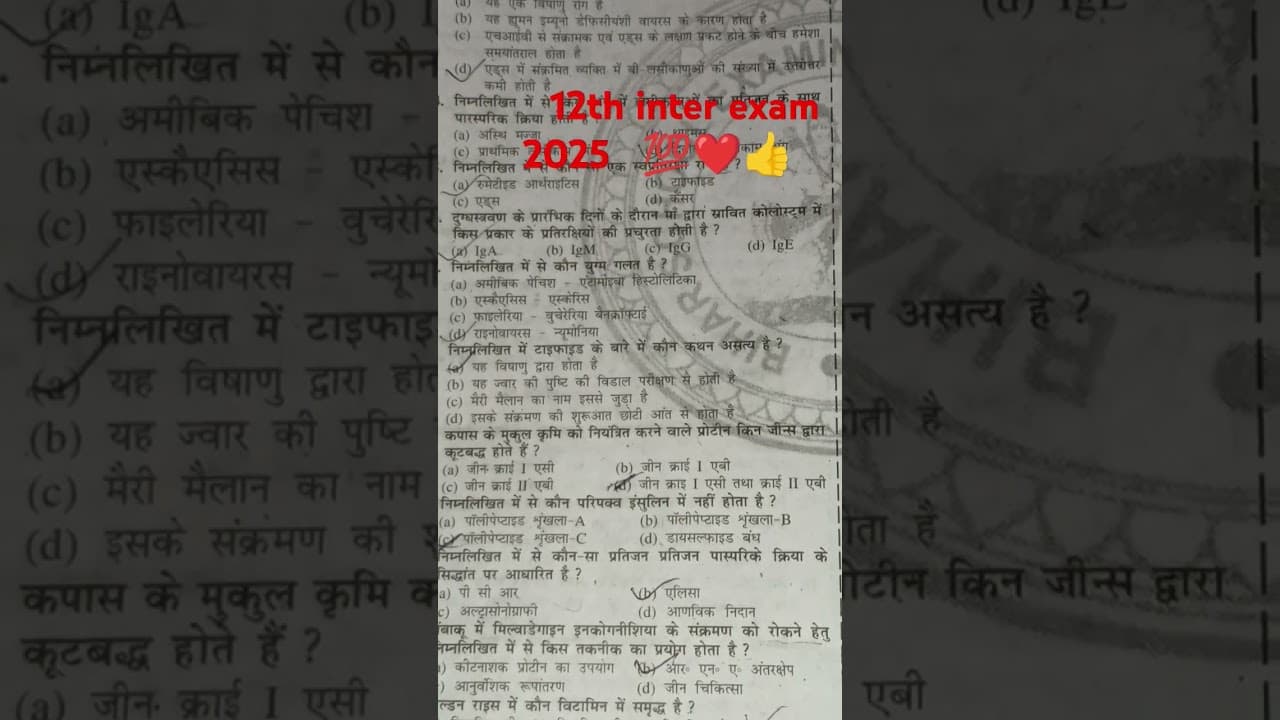 (a) यह एक विषाणु रोग है
(b) यह ह्यूमन इम्यूनो डेफिसीयंशी वायरस के कारण होता है
(c) एचआईवी से संक्रामक एवं एड्स के लक्षण प्रकट होने के बीच हमेशा
समयांतराल होता है
(d) एड्स में संक्रमित व्यक्ति में बी-लसीकाणुओं की संख्या में उत्तरोत्तर
कमी होती है
निम्नलिखित में से के साथ
पारस्परिक क्रिया होती है ?
12th inter exam
2025 💯❤️👍
(a) अस्थि मज्जा (b) थाइमस
(c) प्राथमिक
निम्नलिखित में से कौन एक स्वप्रतिरक्षा ?
(a) रुमेटीइड आर्थराइटिस (b) टाइफॉइड
(c) एड्स (d) कैंसर
दुग्धस्त्रवण के प्रारंभिक दिनों के दौरान माँ द्वारा स्रावित कोलोस्ट्रम में
किस प्रकार के प्रतिरक्षियों की प्रचुरता होती है ?
(a) IgA (b) IgM (c) IgG (d) IgE
निम्नलिखित में से कौन युग्म गलत है ?
(a) अमीबिक पेचिश - एंटामोइबा हिस्टोलिटिका
(b) एस्कैएसिस - एस्केरिस
(c) फाइलेरिया - वुचेरेरिया बैनक्रॉफ्टाई
(d) राइनोवायरस - न्यूमोनिया
निम्नलिखित में टाइफाइड के बारे में कौन कथन असत्य है ?
(a) यह विषाणु द्वारा होता है
(b) यह ज्वार की पुष्टि की विडाल परीक्षण से होती है
(c) मैरी मैलान का नाम इससे जुड़ा है
(d) इसके संक्रमण की शुरूआत छोटी आंत से होता है
कपास के मुकुल कृमि को नियंत्रित करने वाले प्रोटीन किन जीन्स द्वारा
कूटबद्ध होते हैं ?
(a) जीन क्राई I एसी (b) जीन क्राई I एबी
(c) जीन क्राई II एबी (d) जीन क्राइ I एसी तथा क्राई II एबी
निम्नलिखित में से कौन परिपक्व इंसुलिन में नहीं होता है ?
(a) पॉलीपेप्टाइड शृंखला-A (b) पॉलीपेप्टाइड शृंखला-B
(c) पॉलीपेप्टाइड शृंखला-C (d) डायसल्फाइड बंध
निम्नलिखित में से कौन-सा प्रतिजन प्रतिजन पास्परिके क्रिया के
सिद्धांत पर आधारित है ?
a) पी सी आर (b) एलिसा
c) अल्ट्रासोनोग्राफी (d) आणविक निदान
तंबाकू में मिल्वाडेगाइन इनकोगनीशिया के संक्रमण को रोकने हेतु
निम्नलिखित में से किस तकनीक का प्रयोग होता है ?
) कीटनाशक प्रोटीन का उपयोग (b) आर० एन० ए० अंतरक्षेप
) आनुवंशिक रूपांतरण (d) जीन चिकित्सा
ल्डन राइस में कौन विटामिन में समृद्ध है ?